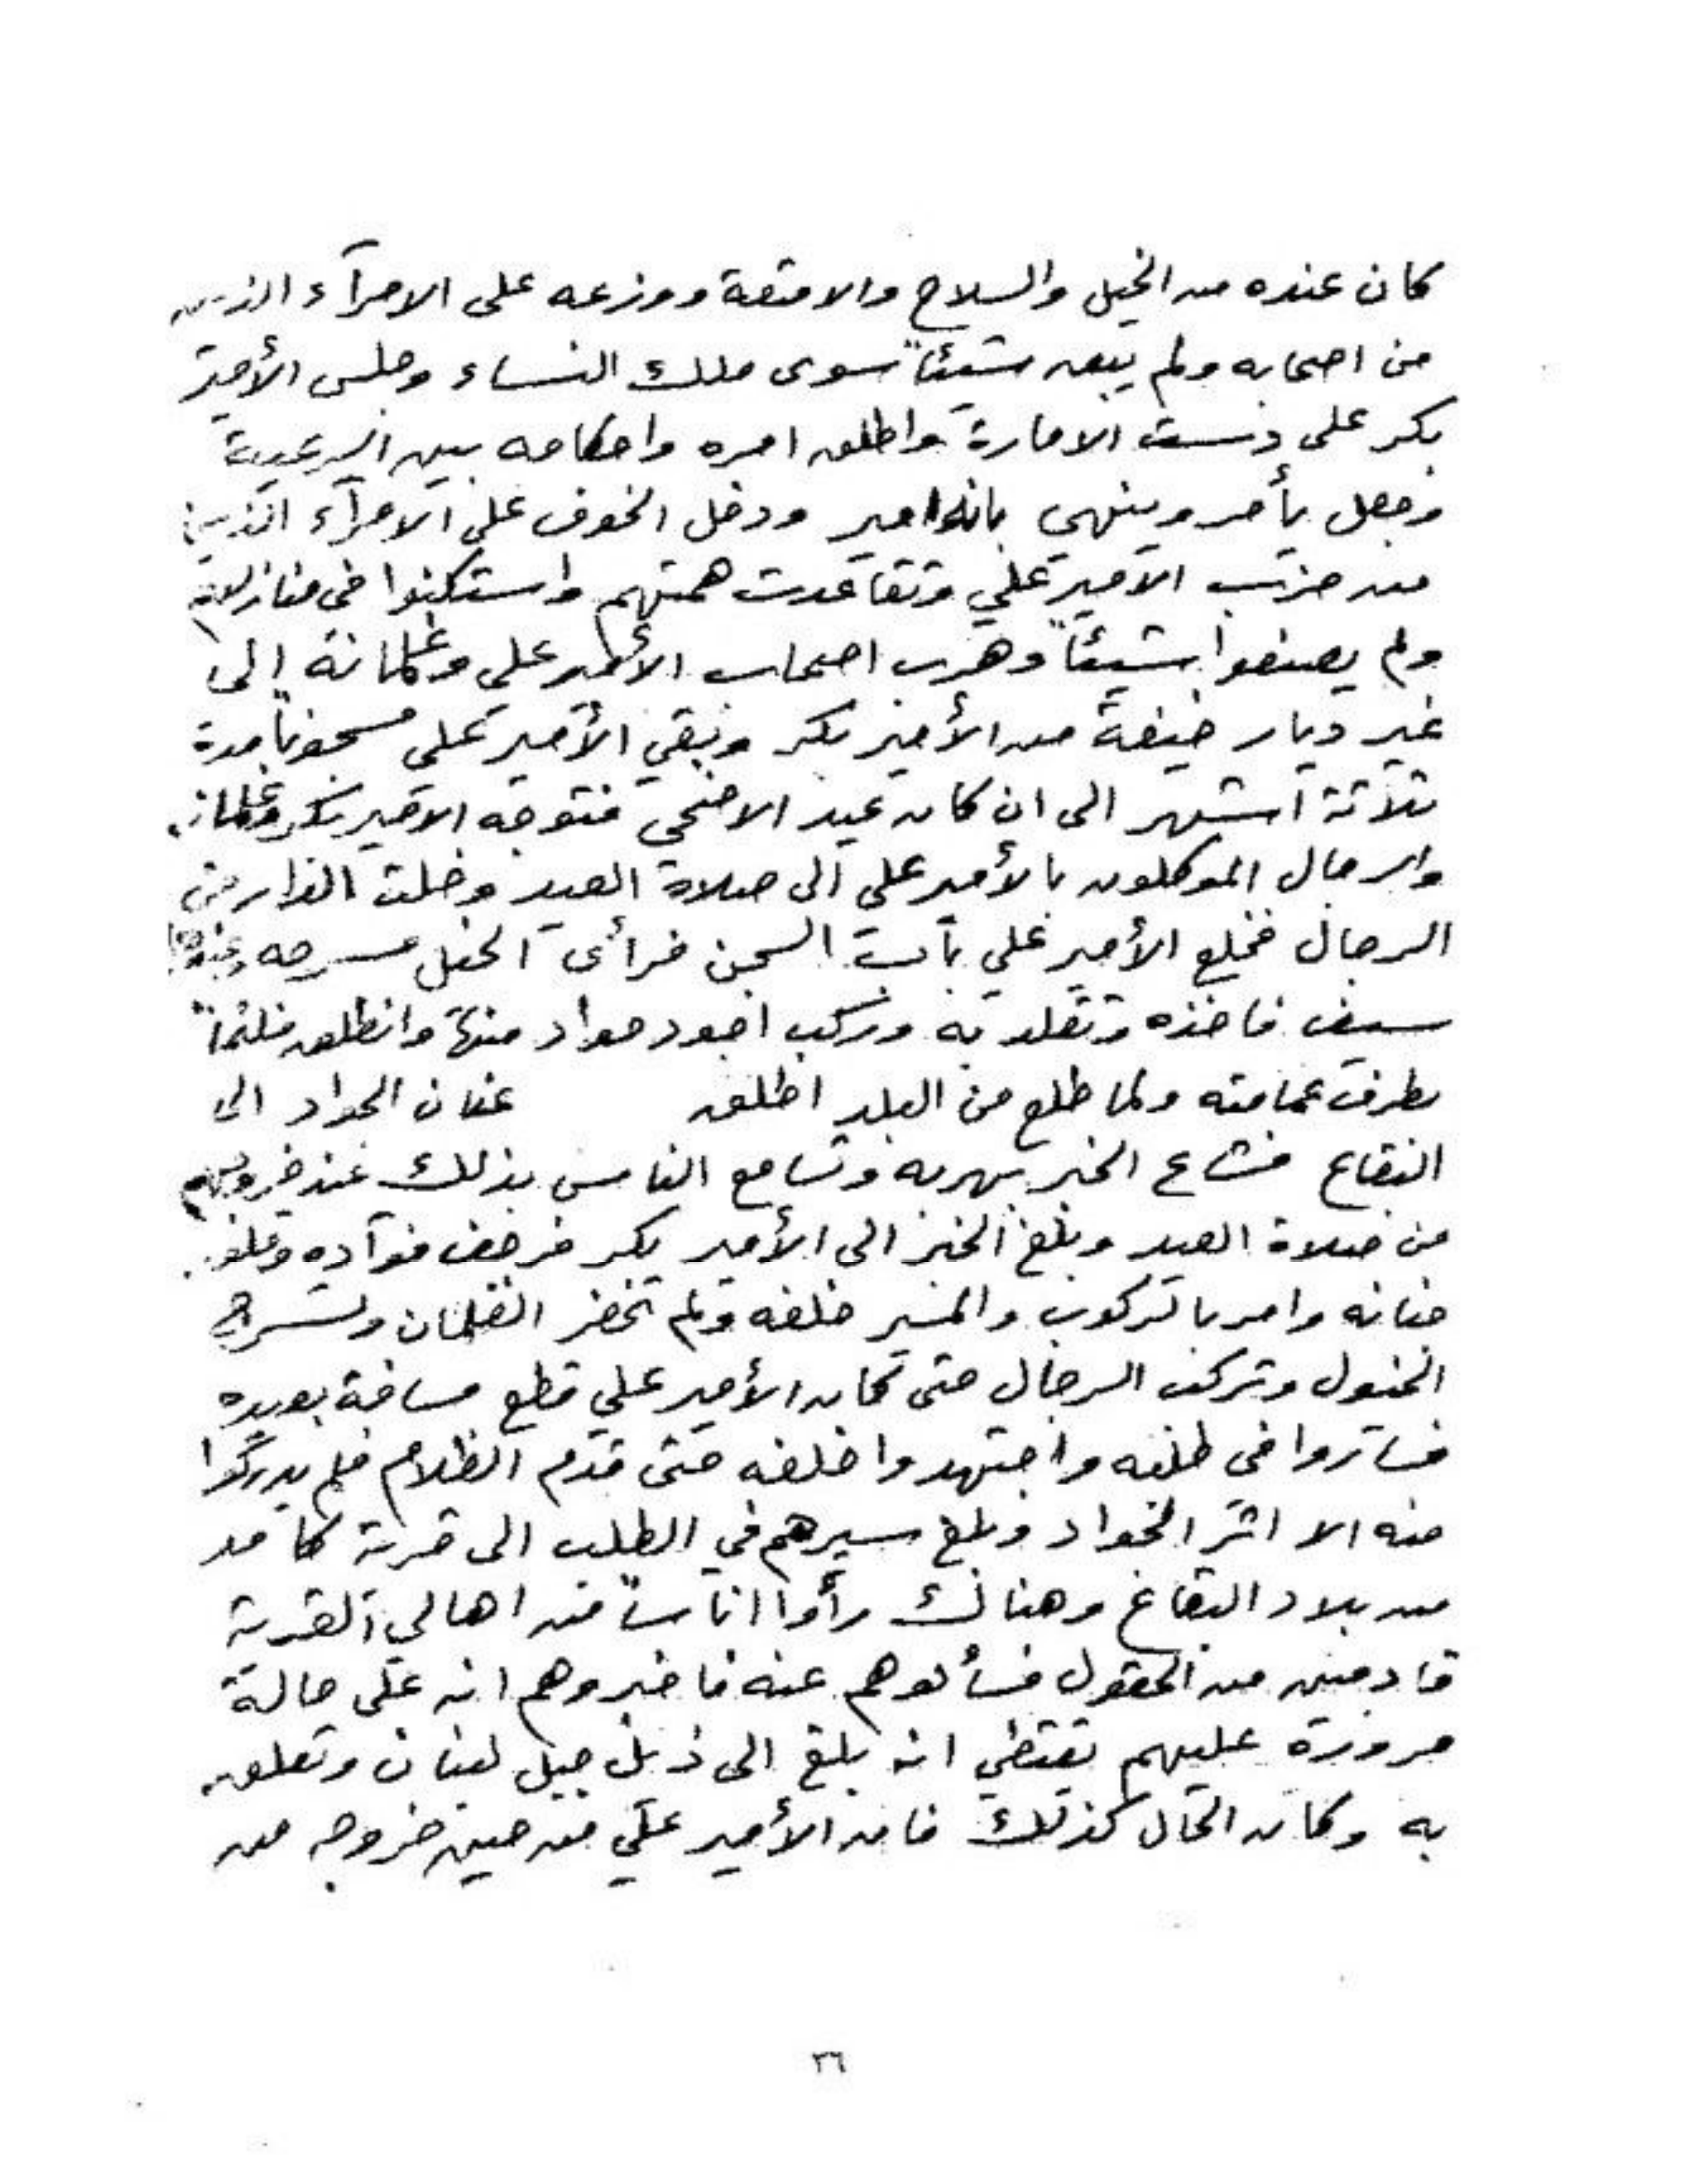 كان عنده من الخيل والسلاح والامتعة ووزعه على الامرآء الذين
من اصحابه ولم يبق شيئاً سوى ملك النساء وجلس الأمير
بكر على دست الامارة واطلق امره واحكامه بين الرعية
وجعل يأمر وينهي بانه امير ودخل الخوف على الامرآء الذين
من حزب الامير علي وتقاعدت همتهم واستكنوا في منازلهم
ولم يصنعوا شيئاً وهرب اصحاب الأمير علي وغلمانه إلى
غير ديار خيفة من الأمير بكر وبقي الأمير علي مسجوناً مدة
ثلاثة اشهر الى ان كان عيد الاضحى فتوجه الامير بكر وغلمانه
والرجال الموكلون بالأمير علي الى صلاة العيد وخلت الدار من
الرجال فخلع الأمير علي باب السجن فرأى الخيل مسرجه وعندها
سيف فاخذه وتقلد به وركب اجود جواد منها وانطلق ملثماً
بطرف عمامته ولما طلع من البلد اطلق عنان الجواد الى
البقاع فشاع الخبر بهربه وتسامع الناس بذلك عند خروجهم
من صلاة العيد وبلغ الخبر الى الأمير بكر فرجف فوآده وقلق
جنانه وامر بالركوب والمسير خلفه ولم تحضر الغلمان وتسرج
الخيول وتركب الرجال حتى كان الأمير علي قطع مسافة بعيده
فساروا في طلبه واجتهدوا خلفه حتى قدم الظلام فلم يدركوا
منه الا اثر الجواد وبلغ سيرهم في الطلب الى قرية كامد
من بلاد البقاع وهنالك رأوا اناساً من اهالي القرية
قادمين من الحقول فسألوهم عنه فاخبروهم انه على حالة
مروره عليهم يقتضي انه بلغ الى ذيل جبل لبنان وتعلق
به وكان الحال كذلك فان الأمير علي من حين خروجه من
٣٦